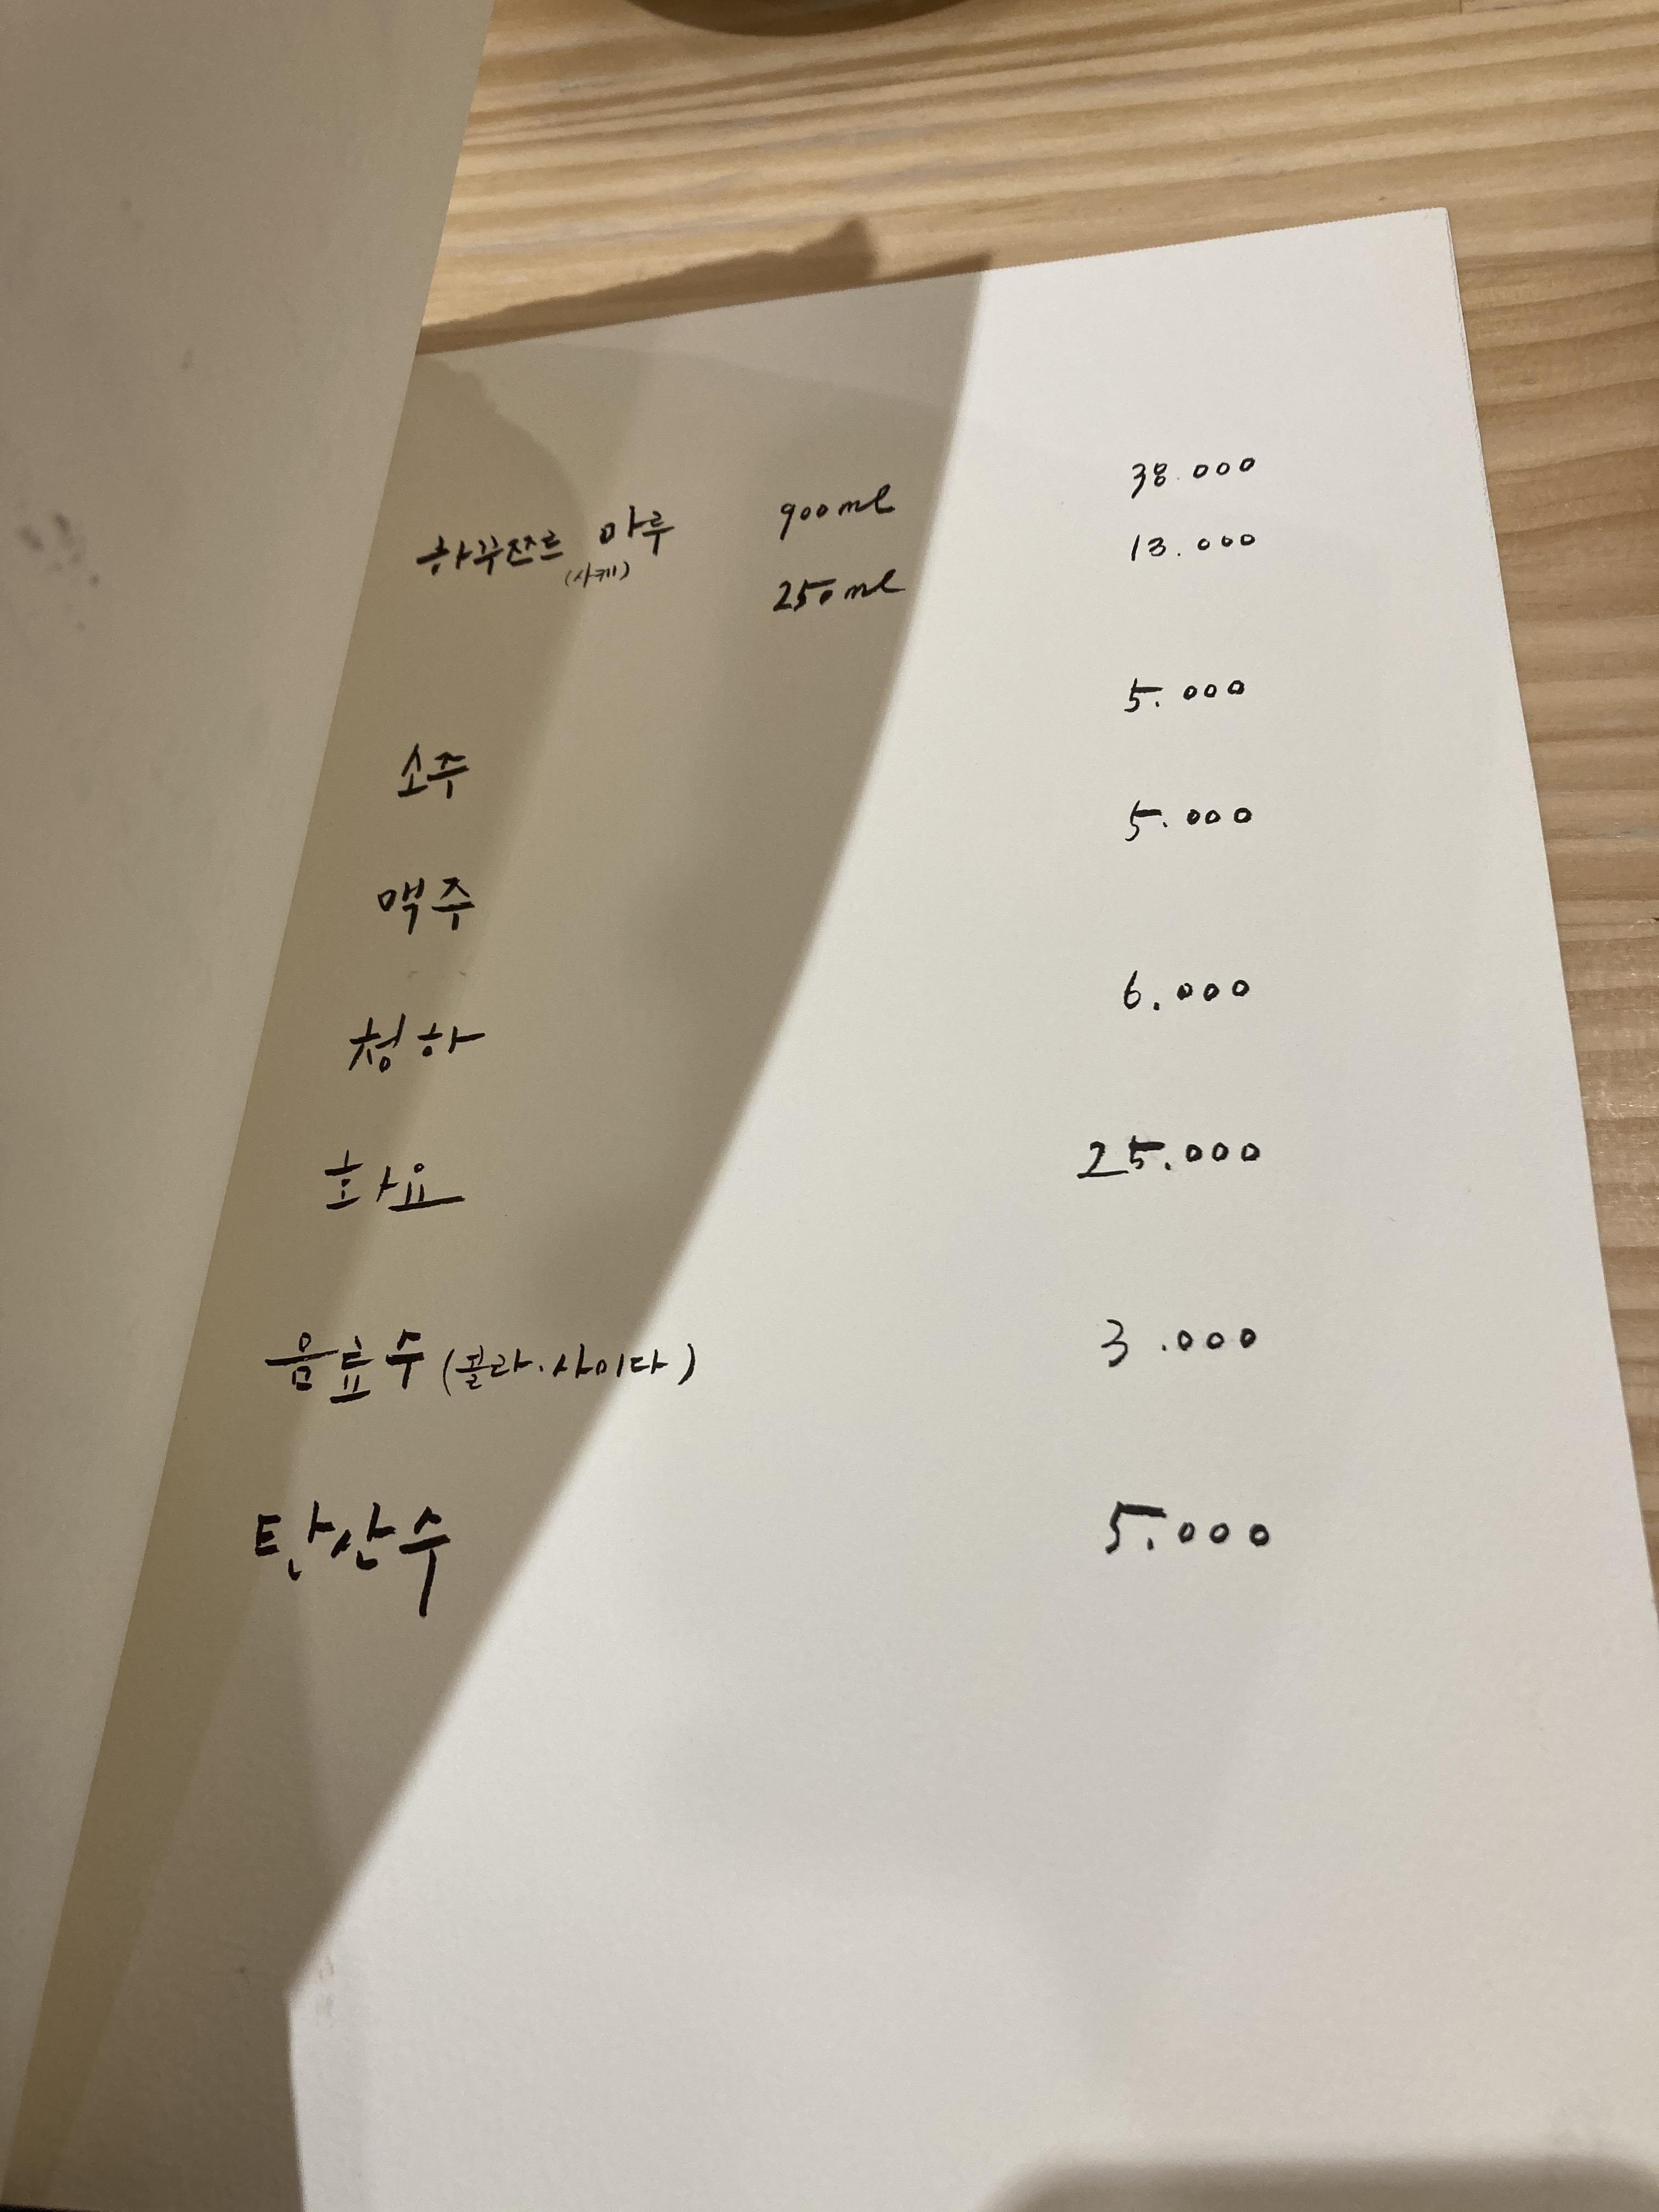 하꾸쯔르 마루 900ml 38.000
(사케) 250ml 13.000
소주 5.000
맥주 5.000
청하 6.000
화요 25.000
음료수 (콜라.사이다) 3.000
탄산수 5.000